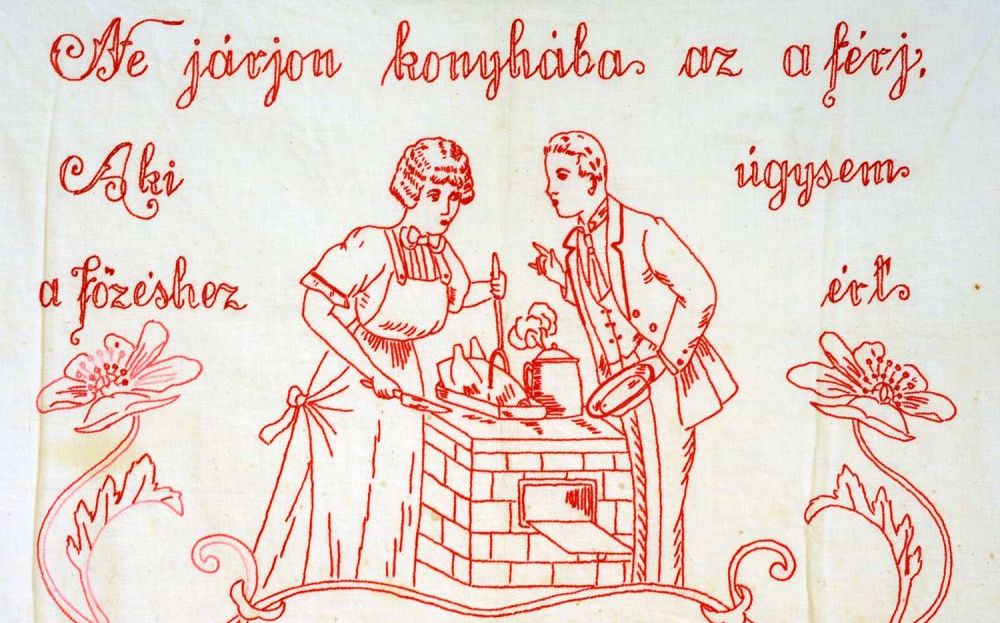 Ne járjon konyhába az a férj.
Aki úgysem
a főzéshez ért.